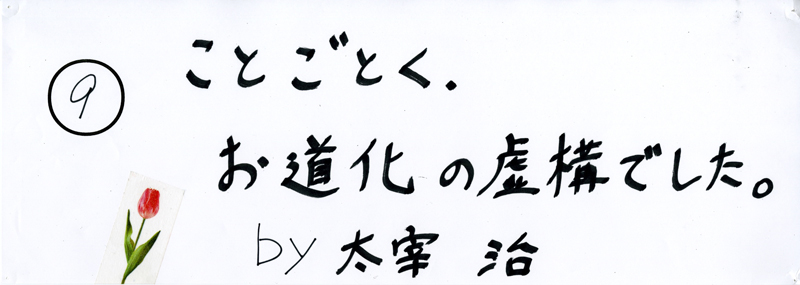 9
ことごとく.
お道化の虚構でした。
by 太宰 治